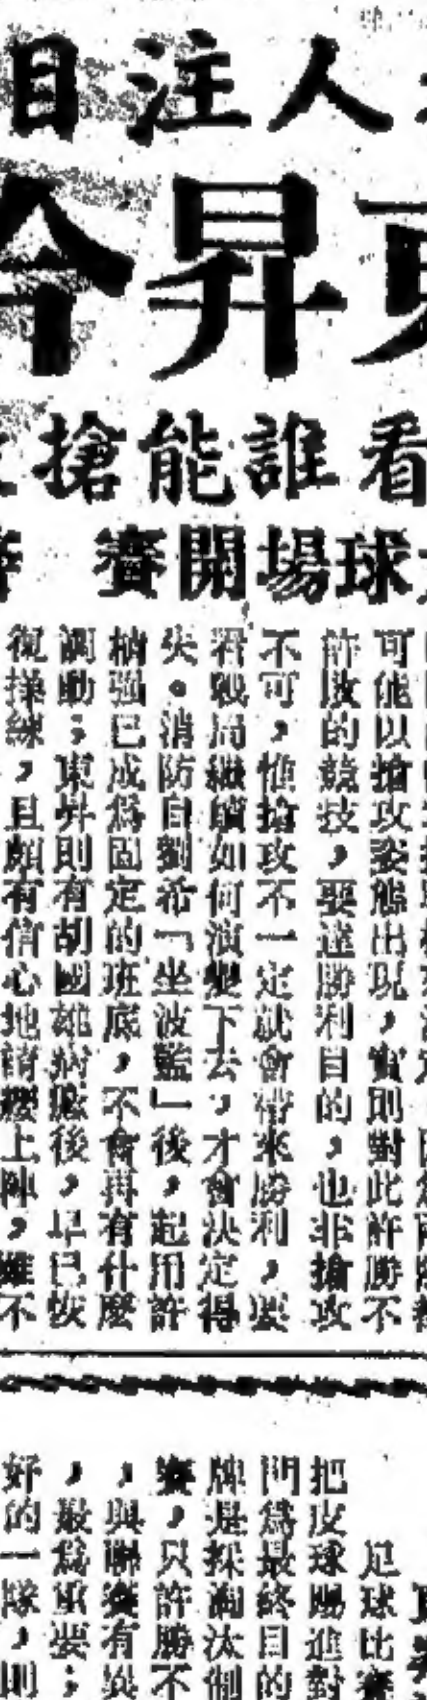 人注目
東昇今
看誰能搶
球場開賽
可能以搶攻姿態出現，實則對此許勝不
許敗的競技，要達勝利目的，也非搶攻
不可，惟搶攻不一定就會帶來勝利，要
看戰局繼續如何演變下去，才會決定得
失。消防自劉希「坐波監」後，起用許
楠強已成爲固定的班底，不會再有什麼
調動；東昇則有胡國雄病癒後，早已恢
復操練，且頗有信心地請纓上陣，雖不
足球比賽
把皮球踢進對
門爲最終目的
牌是採淘汰制
賽，只許勝不
，與聯賽有異
，最爲重要；
好的一隊，則